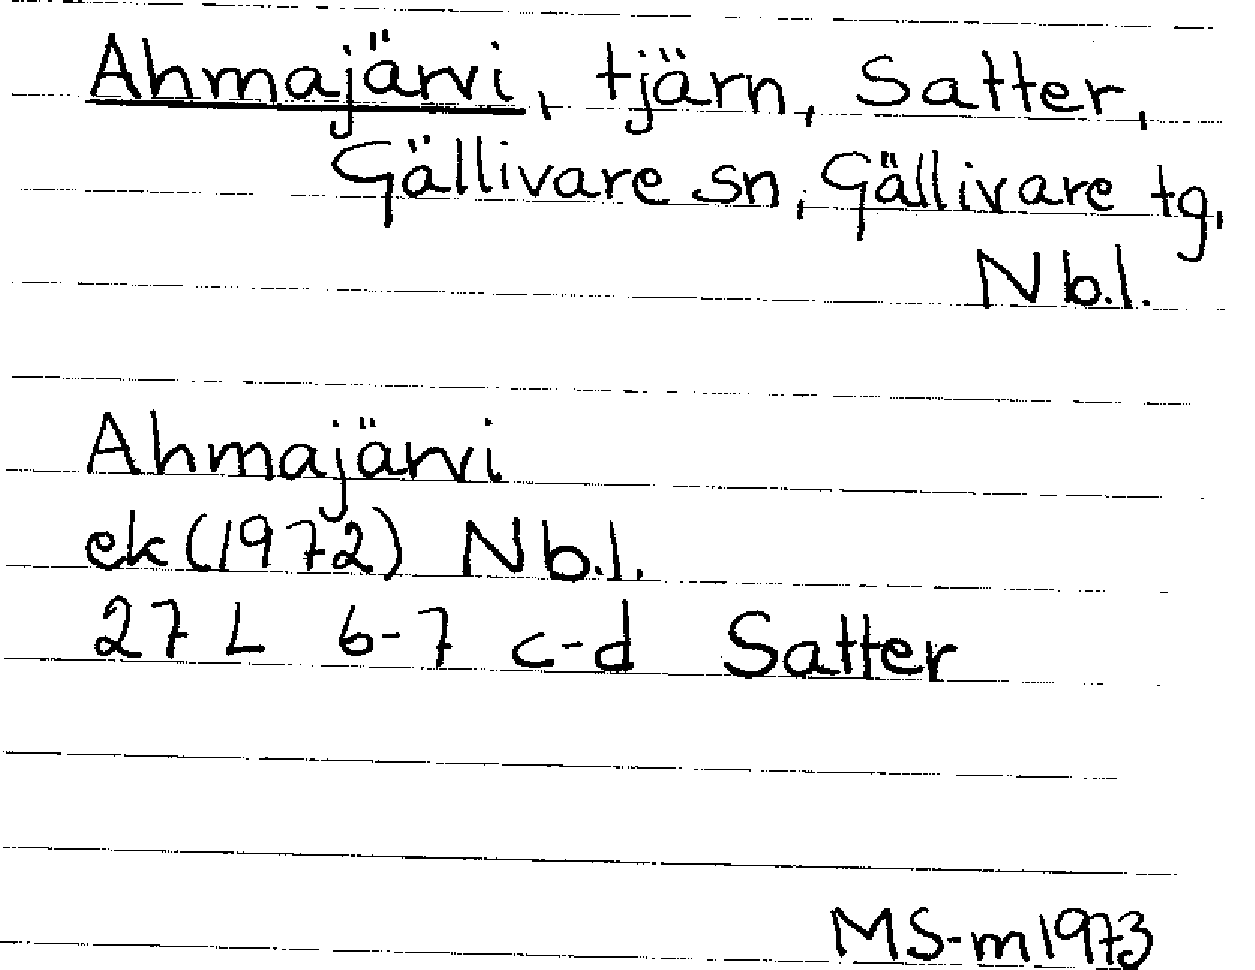 Ahmajärvi, tjärn, Satter,
Gällivare sn, Gällivare tg,
Nb.l.
Ahmajärvi
ek (1972) Nb.l.
27 L 6-7 c-d Satter
MS-m 1973